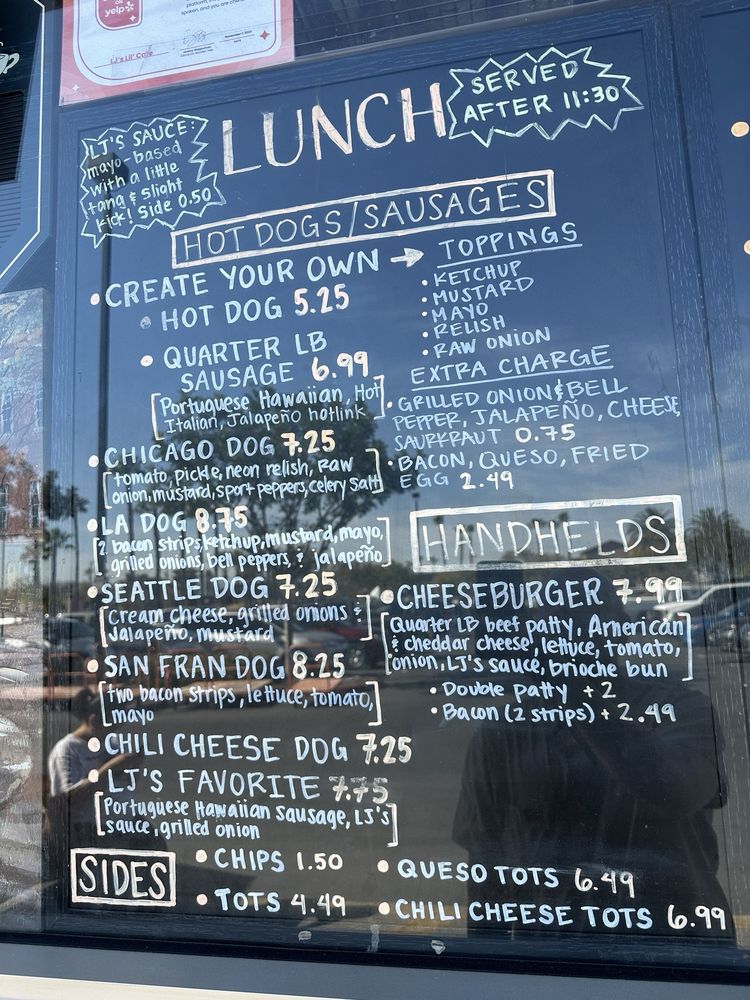 yelp
LJ's Lil' Cafe
LUNCH
SERVED
AFTER 11:30
LJ'S SAUCE:
mayo-based
with a little
tang & slight
kick! Side 0.50
HOT DOGS/SAUSAGES
• CREATE YOUR OWN →
• HOT DOG 5.25
• QUARTER LB
SAUSAGE 6.99
[Portuguese Hawaiian, Hot
Italian, Jalapeño hotlink]
TOPPINGS
• KETCHUP
• MUSTARD
• MAYO
• RELISH
• RAW ONION
EXTRA CHARGE
• GRILLED ONION & BELL
PEPPER, JALAPEÑO, CHEESE,
SAURKRAUT 0.75
• BACON, QUESO, FRIED
EGG 2.49
• CHICAGO DOG 7.25
[tomato, pickle, neon relish, raw
onion, mustard, sport peppers, celery salt]
• LA DOG 8.75
[2 bacon strips, ketchup, mustard, mayo,
grilled onions, bell peppers, & jalapeño]
• SEATTLE DOG 7.25
[cream cheese, grilled onions &
Jalapeño, mustard]
• SAN FRAN DOG 8.25
[two bacon strips, lettuce, tomato,
mayo]
• CHILI CHEESE DOG 7.25
• LJ'S FAVORITE 7.75
[Portuguese Hawaiian Sausage, LJ's
sauce, grilled onion]
HANDHELDS
• CHEESEBURGER 7.99
[Quarter LB beef patty, American
& cheddar cheese, lettuce, tomato,
onion, LJ's sauce, brioche bun]
• Double patty +2
• Bacon (2 strips) + 2.49
SIDES
• CHIPS 1.50
• TOTS 4.49
• QUESO TOTS 6.49
• CHILI CHEESE TOTS 6.99